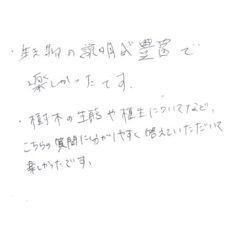 ・生物の説明が豊富で
楽しかったです。
・樹木の生態や植生についてなど、
こちらの質問に分かりやすく答えていただいて
楽しかったです。